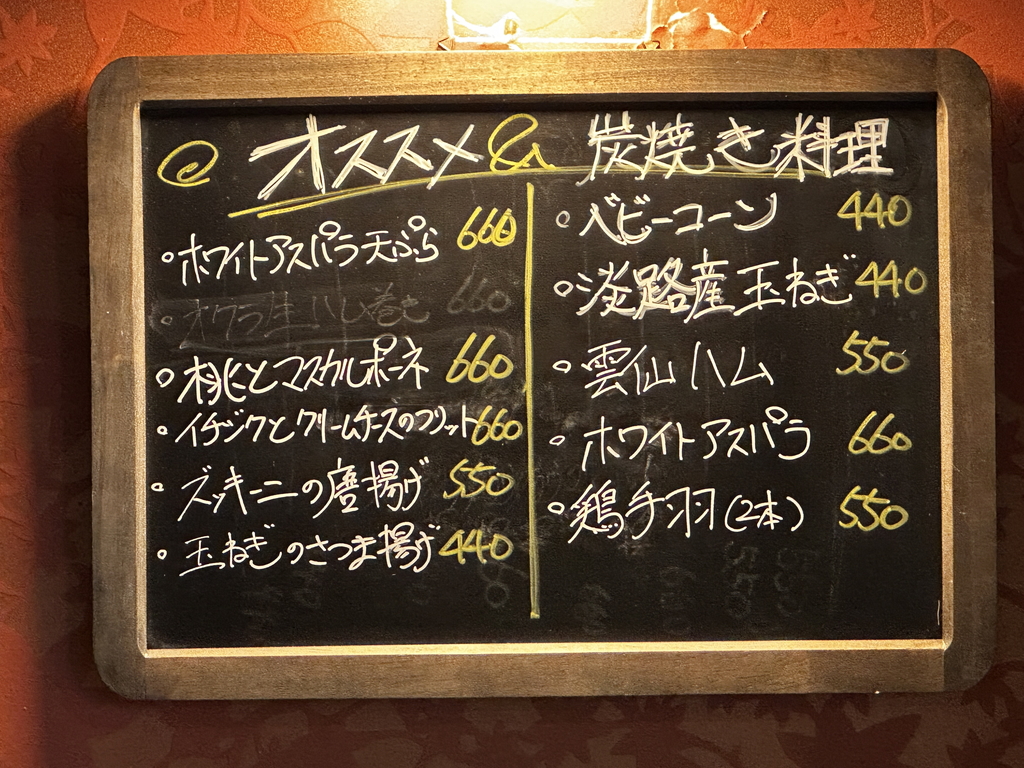 オススメ & 炭焼き料理
・ホワイトアスパラ天ぷら 660
オクラ生ハム巻き 660
・桃とマスカルポーネ 660
・イチジクとクリームチーズのフリット 660
・ズッキーニの唐揚げ 550
・玉ねぎのさつま揚げ 440
・ベビーコーン 440
・淡路産玉ねぎ 440
・雲仙ハム 550
・ホワイトアスパラ 660
・鶏手羽(2本) 550